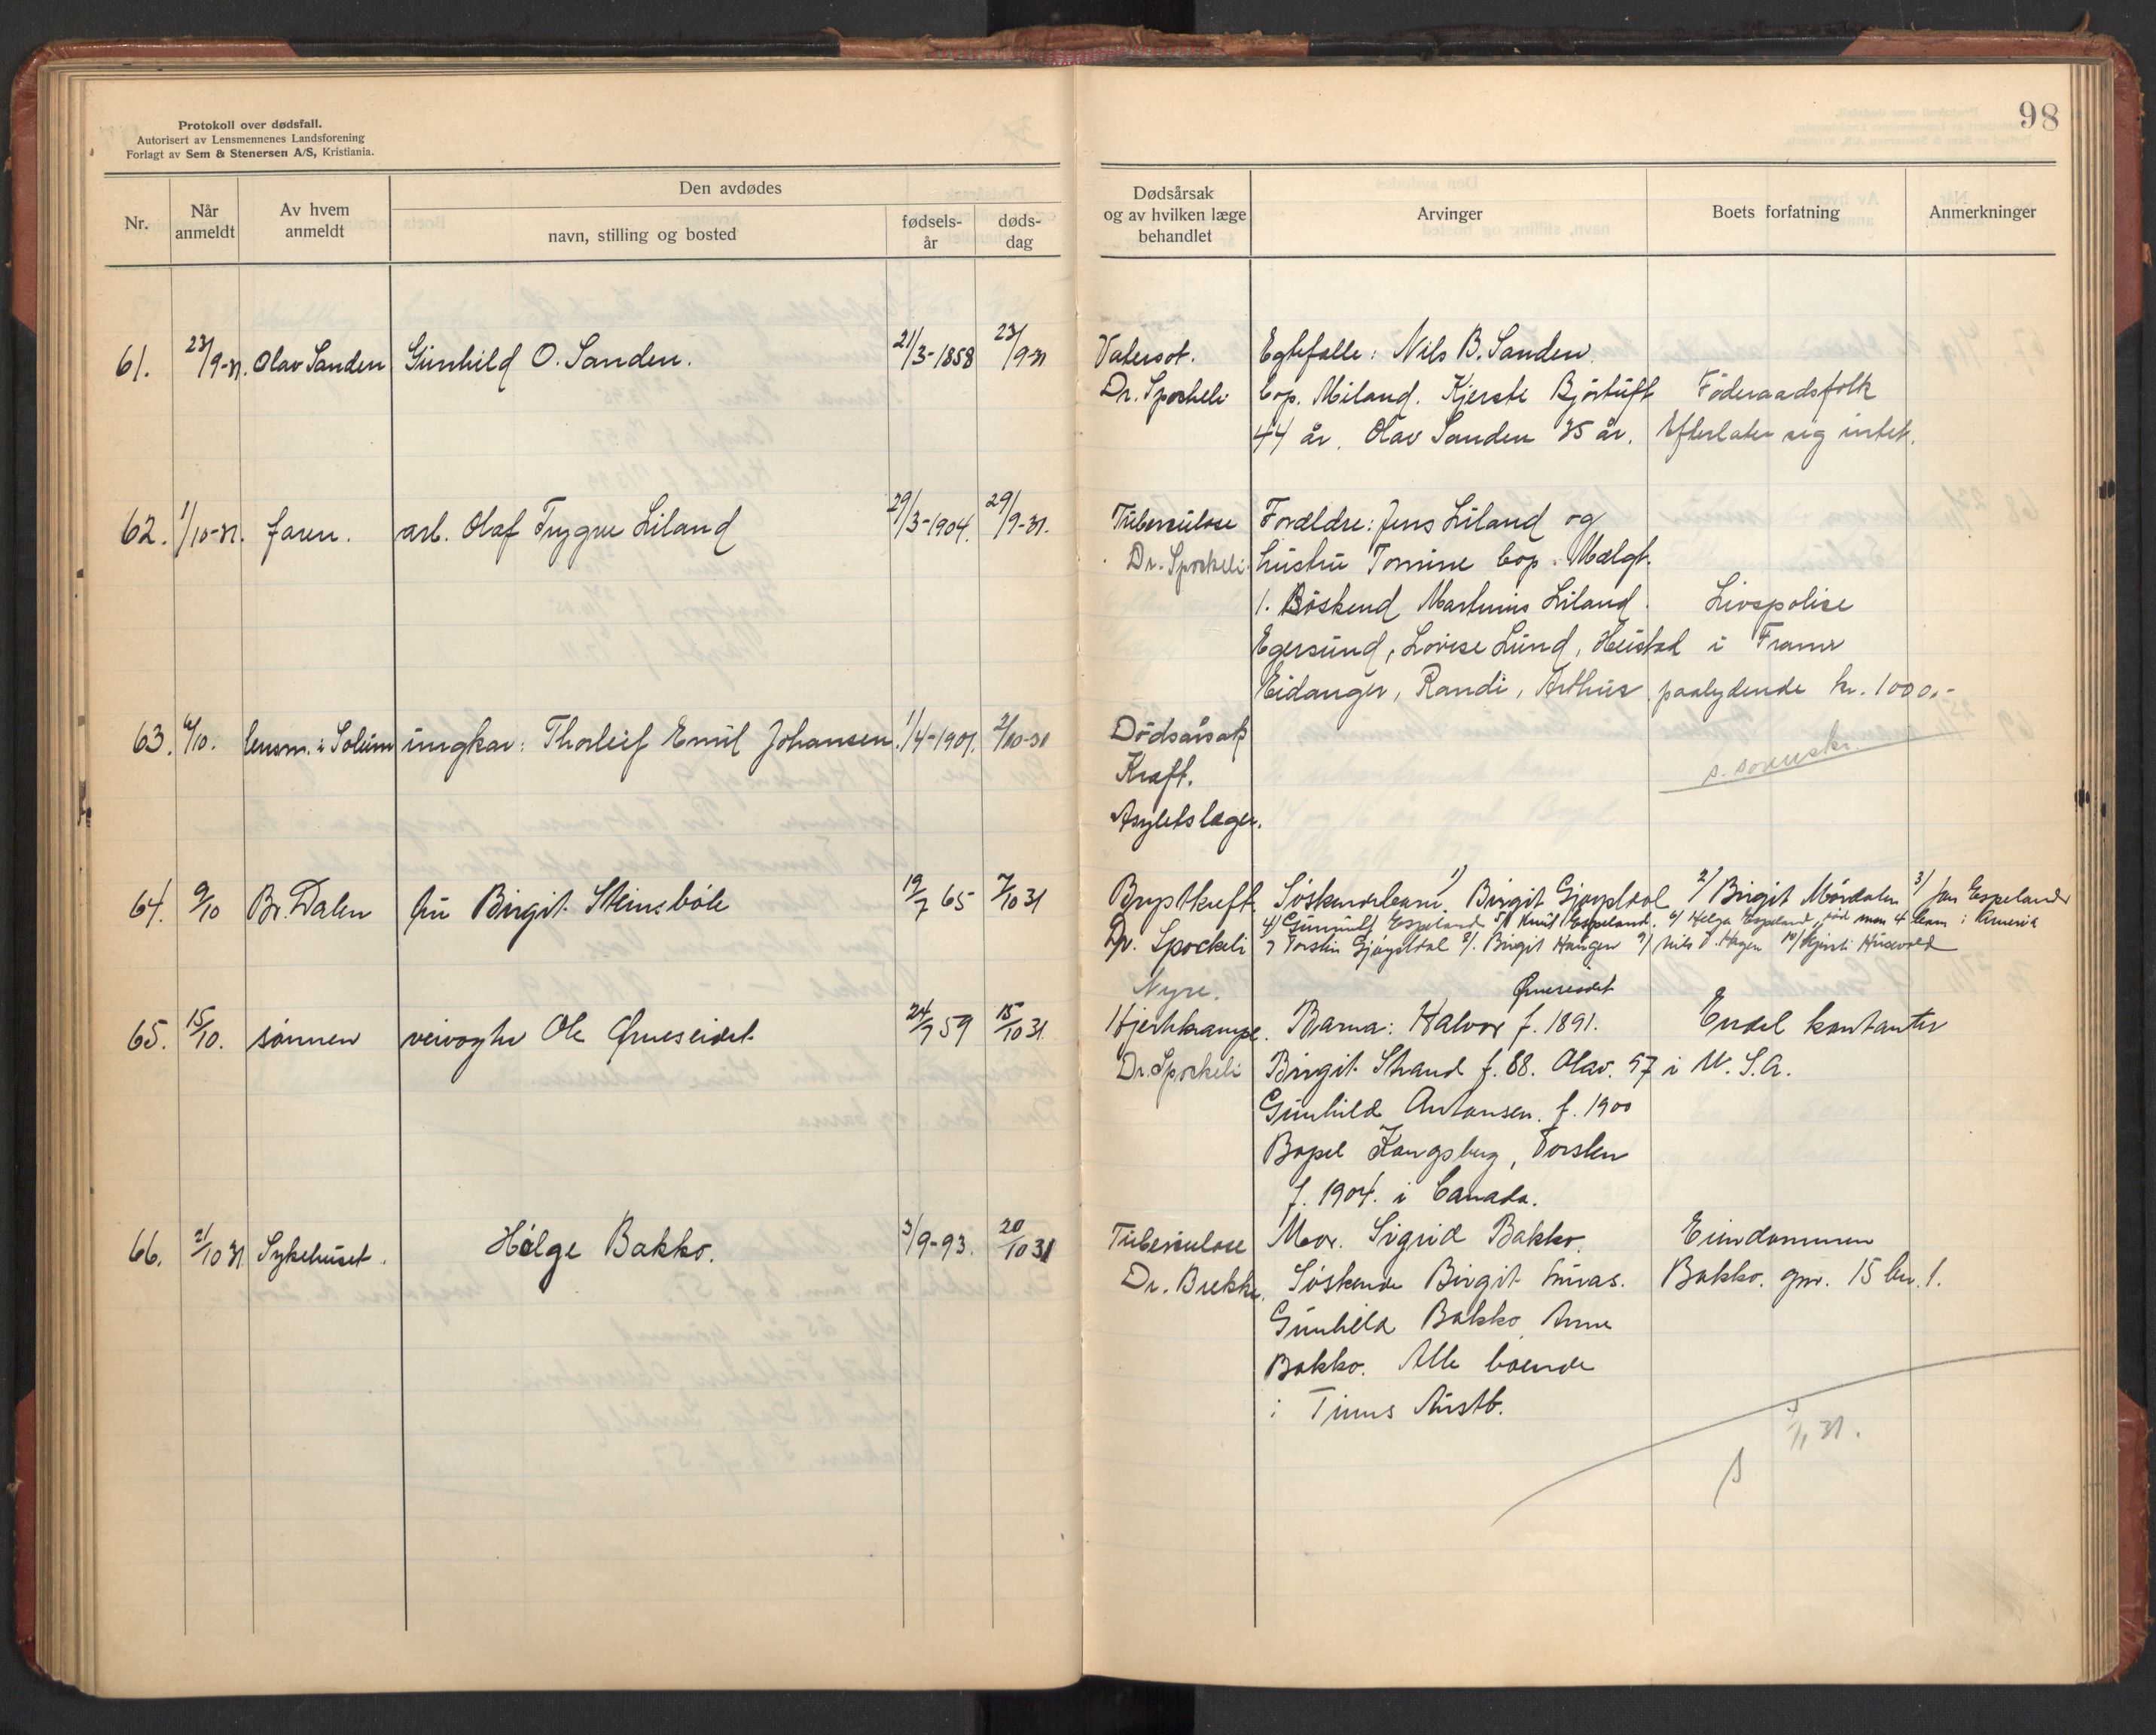 Protokoll over dødsfall.
Autorisert av Lensmennenes Landsforening
Forlagt av Sem & Stenersen A/S, Kristiania.
98
Nr.
Når anmeldt
Av hvem anmeldt
Den avdødes
navn, stilling og bosted
fødsels-år
døds-dag
Dødsårsak og av hvilken læge behandlet
Arvinger
Boets forfatning
Anmerkninger
61. 23/9-31. Olav Sanden Gunhild O. Sanden. 21/3-1858 23/9-31 Vatersot. Egtefælle: Nils B. Sanden
Dr. Sporkeli bop. Miland. Kjerste Bjørtuft Føderaadsfolk
44 år. Olav Sanden 35 år. Efterlater sig intet.
62. 1/10-31. faren. arb. Olaf Trygve Liland 29/3-1904. 29/9-31. Tuberculose Forældre: Jens Liland og
Dr. Sporkeli hustru Tomine bop. Mælgt.
1. Søskend Martinius Liland. Livspolise
Egersund, Lovise Lund, Heistad i Fram
Eidanger, Randi, Arthur paalydende kr. 1000.-
63. 6/10. lensm. i Solum ungkar: Thorleif Emil Johansen. 1/4-1901. 2/10-31 Dødsårsak
Kræft.
Asylets læge.
64. 9/10 Br. Dalen fru Birgit Steinsbøle 19/7 65 7/10 31 Brystkreft Søskendebarn 1) Birgit Gjøystdal 2/ Birgit Mårdalen 3/ Jon Espeland
4/ Gunnulf Espeland 5/ Knut Espeland. 6/ Helga Espeland, død men 4 barn i Amerika
Dr. Sporkeli 7 Torstein Gjøystdal 8/. Birgit Haugen 9/ Nils O. Hagen 10/ Kjersti Husevold
Nyre.
Ørneseidet
65. 15/10. sønnen veivogter Ole Ørneseidet. 24/7 59 15/10 31. Hjertekrampe. Barna: Halvor f. 1891. Endel kontanter
Dr. Sporkeli Birgit Strand f. 88. Olav. 97 i U.S.A.
Gunhild Antonsen. f. 1900
Bopel Kongsberg, Torsten
f. 1904. i Canada.
66. 21/10 31 Sykehuset. Helge Bakko. 3/9-93. 20/10 31 Tuberculose Mor. Sigrid Bakko. Eiendommen
Dr. Brekke. Søskende Birgit Luras. Bakko. gnr. 15 bn. 1.
Gunhild Bakko Anne
Bakko. Alle boende
i Tinns Austb.